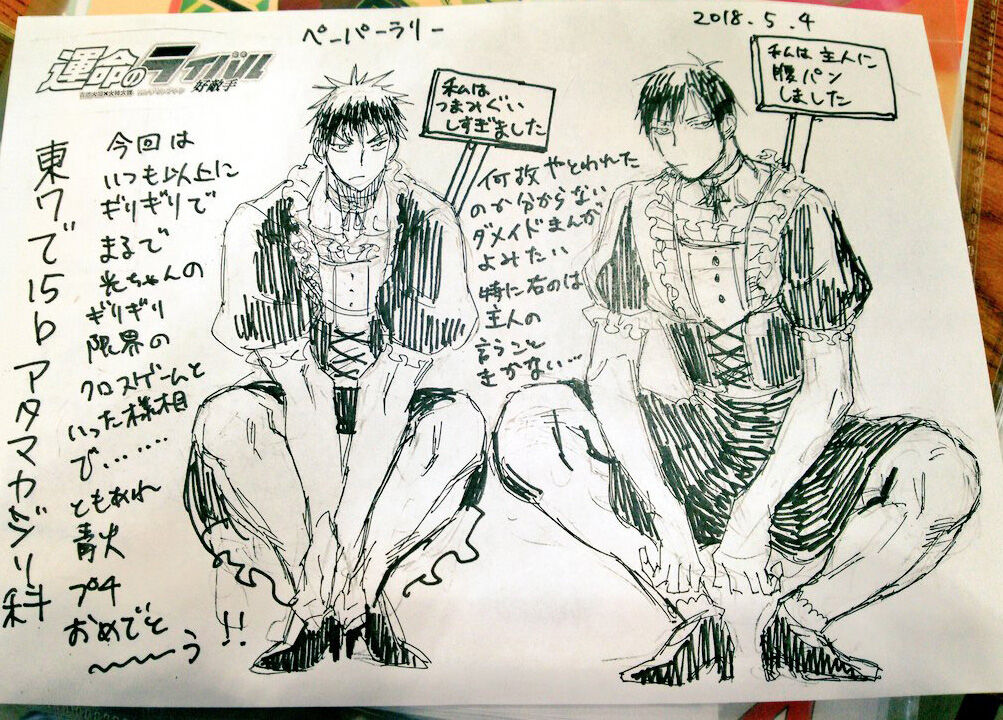 ペーパーラリー
2018.5.4
運命のライバル
好敵手
私は
つまみぐい
しすぎました
私は主人に
腹パン
しました
東ワで15bアタマカジリ科
今回は
いつも以上に
ギリギリで
まるで
光ちゃんの
ギリギリ
限界の
クロスゲームと
いった様相
で‥‥‥
ともあれ
青火
プチ
おめでと
〜〜う!!
何故やとわれた
のか分からない
ダメイドまんが
よみたい
特に右のは
主人の
言うこと
きかない…